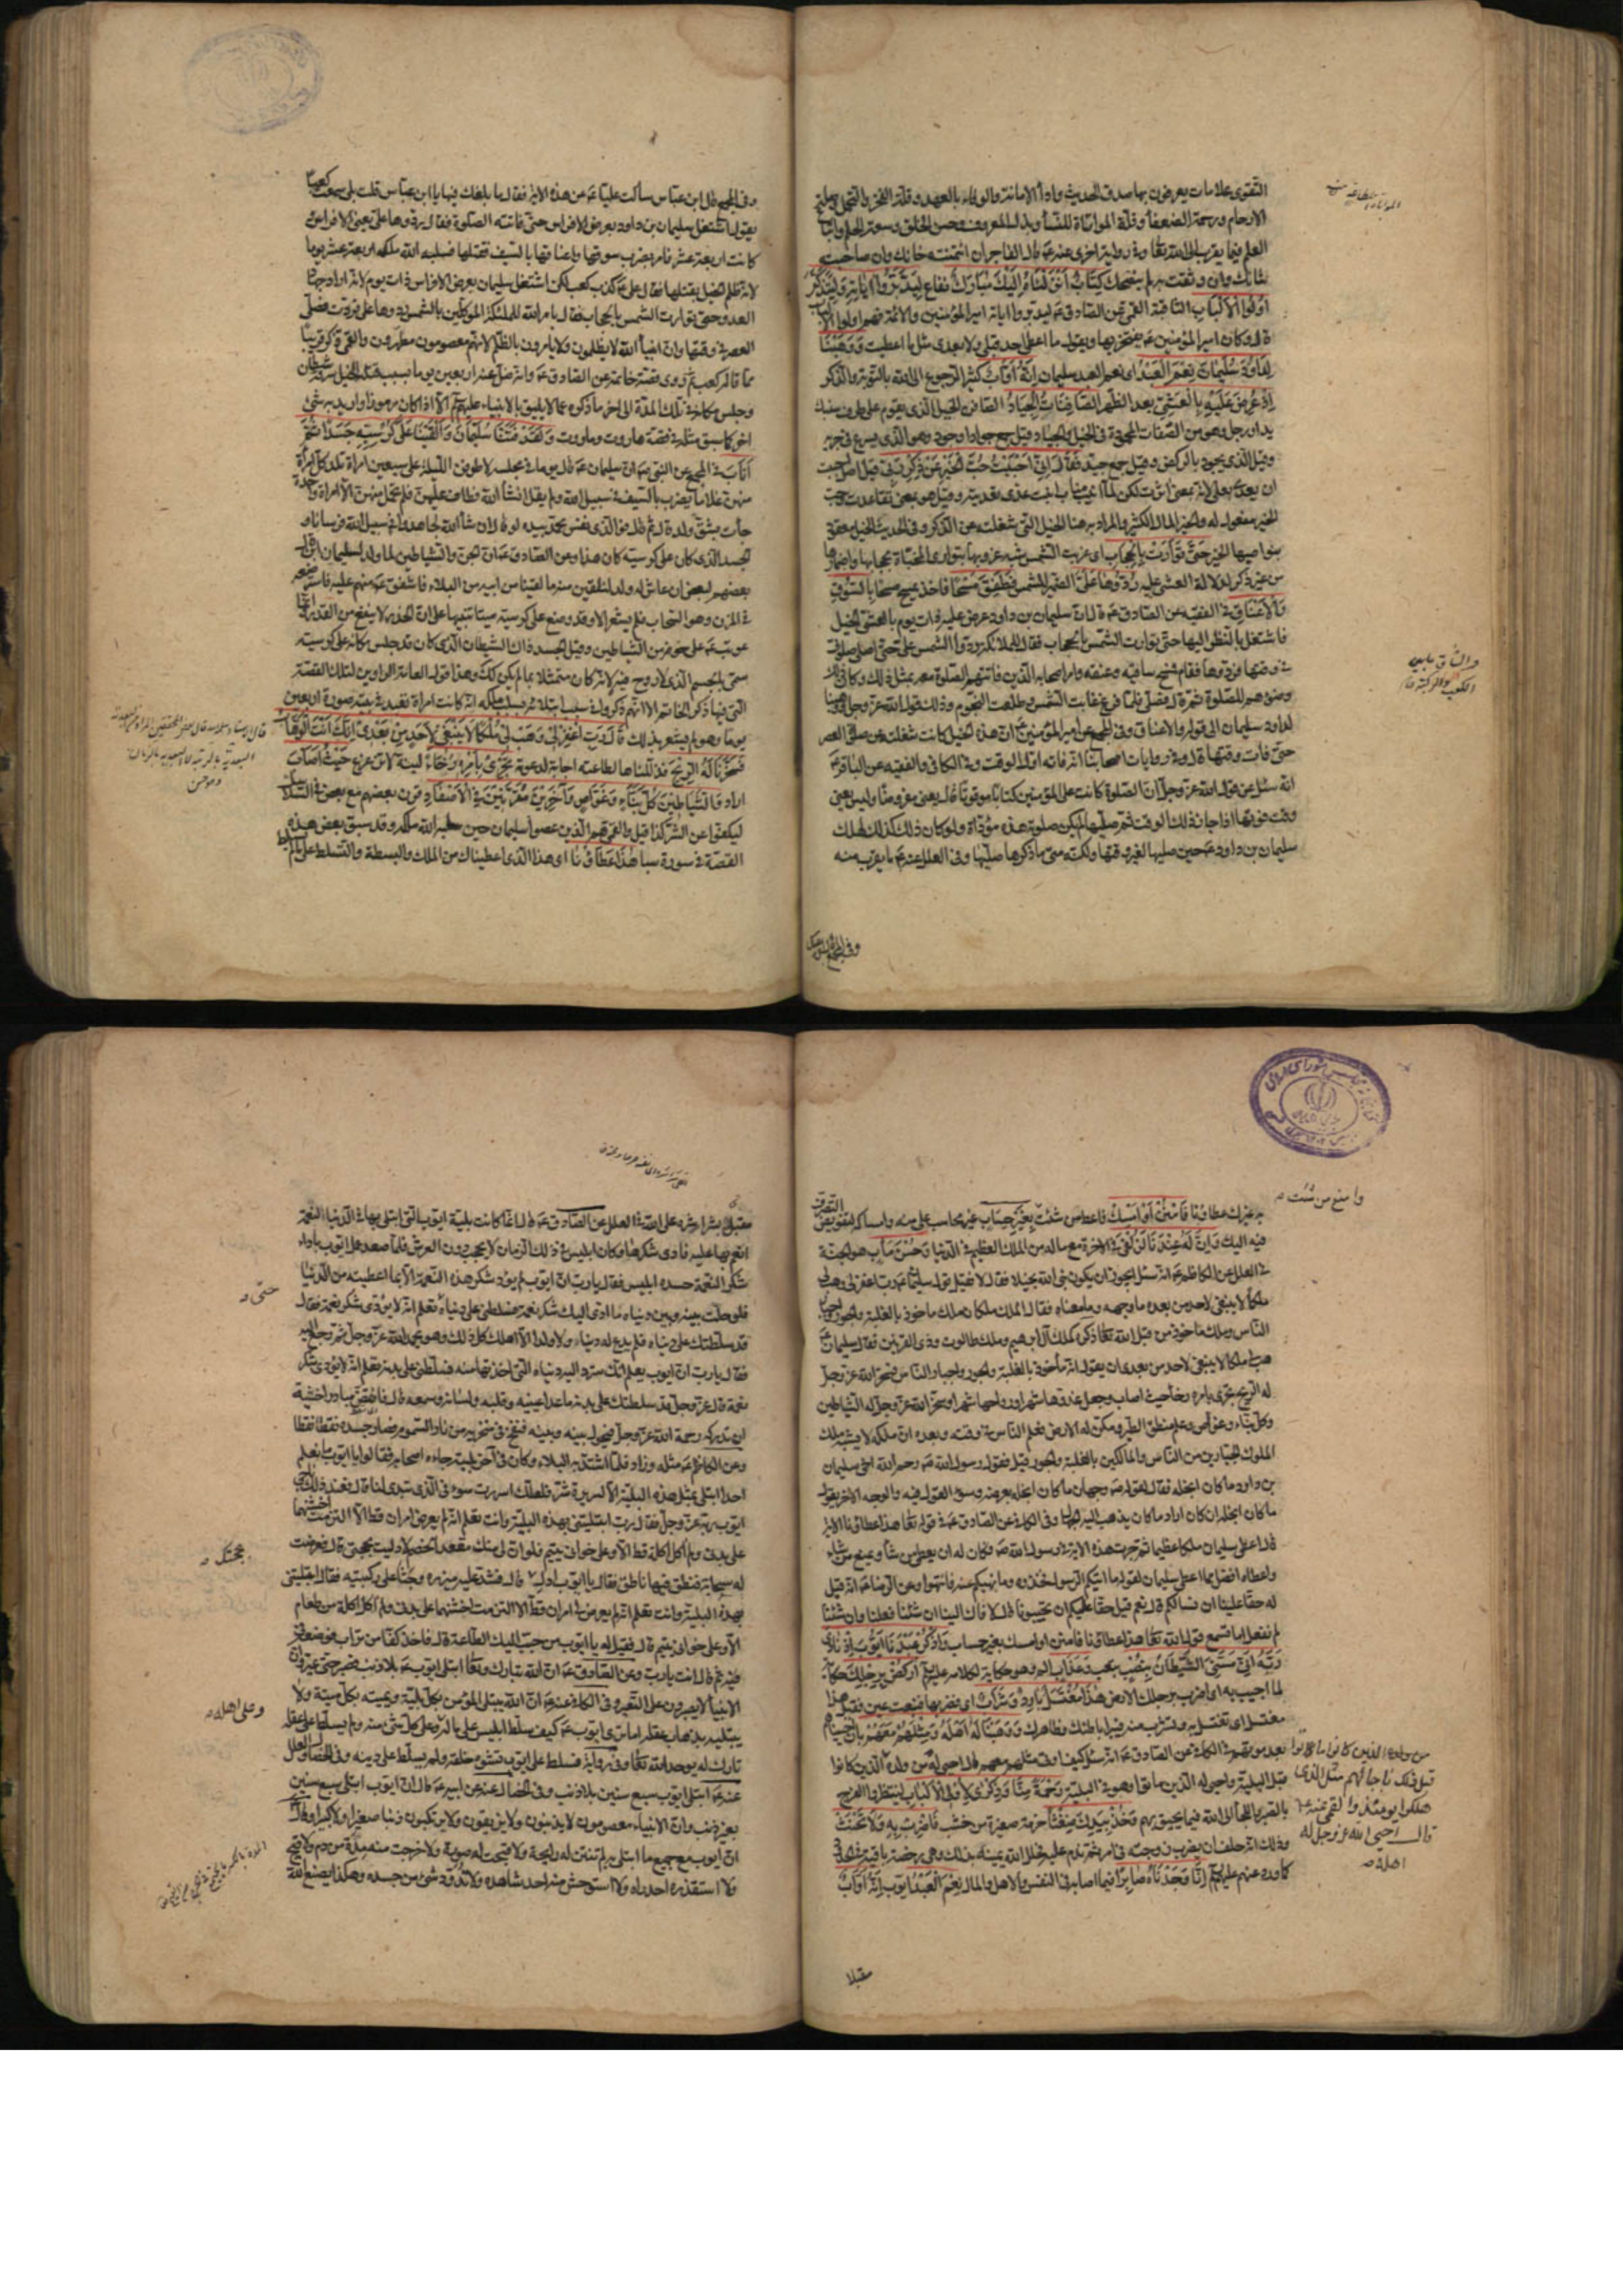 التقوى علامات يعرفون بها صدق الحديث واداء الامانة والوفاء بالعهد وقلة الفخر والتجمل وصلة
الارحام ورحمة الضعفاء وقلة المواتاة للنساء وبذل المعروف وحسن الخلق وسعة الحلم واتباع
العلم فيما يقرب الى الله تعالى وفي رواية اخرى عنه ع قال الفاجر ان ائتمنته خانك وان صاحبته
شانك وان وثقت به لم ينصحك كِتَابٌ أَنْزَلْنَاهُ إِلَيْكَ مُبَارَكٌ نفاع لِيَدَّبَّرُوا آيَاتِهِ وَلِيَتَذَكَّرَ
أُولُوا الْأَلْبَابِ الثاقبة القمي عن الصادق ع ليدبروا اياته امير المؤمنين والائمة فهم اولوا الالباب
قال وكان امير المؤمنين ع يفتخر بها ويقول ما اعطى احد قبلي ولا بعدي مثل ما اعطيت وَوَهَبْنَا
لِدَاوُدَ سُلَيْمَانَ نِعْمَ الْعَبْدُ اى نعم العبد سليمان إِنَّهُ أَوَّابٌ كثير الرجوع الى الله بالتوبة والذكر
إِذْ عُرِضَ عَلَيْهِ بِالْعَشِيِّ بعد الظهر الصَّافِنَاتُ الْجِيَادُ الصافن الخيل الذي يقوم على طرف سنبك
يد او رجل وهو من الصفات المحمودة في الخيل والجياد قيل جمع جواد او جود وهو الذي يسرع في جريه
وقيل الذي يجود بالركض وقيل جمع جيد فَقَالَ إِنِّي أَحْبَبْتُ حُبَّ الْخَيْرِ عَنْ ذِكْرِ رَبِّي قيل اصل احببت
ان يعدى بعلى لانه بمعنى اثرت لكن لما انيب مناب انبت عدى تعديته وقيل هو بمعنى تقاعدت وحب
الخير مفعول له والخير المال الكثير والمراد به هنا الخيل التي شغلته عن الذكر وفي الحديث الخيل معقود
بنواصيها الخير حَتَّى تَوَارَتْ بِالْحِجَابِ اى غربت الشمس شبه غروبها بتوارى المخباة بحجابها واضمارها
من غير ذكر لدلالة العشي عليه رُدُّوهَا عَلَيَّ الضمير للشمس فَطَفِقَ مَسْحًا فاخذ يمسح مسحا بِالسُّوقِ
وَالْأَعْنَاقِ في الفقيه عن الصادق ع قال ان سليمان بن داود عرض عليه ذات يوم بالعشي الخيل
فاشتغل بالنظر اليها حتى توارت الشمس بالحجاب فقال للملائكة ردوا الشمس على حتى اصلي صلوتي
في وقتها فردوها فقام فمسح ساقيه وعنقه وامر اصحابه الذين فاتتهم الصلوة معه بمثل ذلك وكان ذلك
وضوءهم للصلوة ثم قام فصلى فلما فرغ غابت الشمس وطلعت النجوم وذلك قول الله عز وجل ووهبنا
لداود سليمان الى قوله والاعناق وفي المجمع عن امير المؤمنين ع ان هذه الخيل كانت شغلته عن صلوة العصر
حتى فات وقتها قال وفي روايات اصحابنا انه فاته اول الوقت وفي الكافي والفقيه عن الباقر ع
انه سئل عن قول الله عز وجل ان الصلوة كانت على المؤمنين كتابا موقوتا قال يعني مفروضا وليس يعني
وقت فوتها اذا جاز ذلك الوقت ثم صليها لم يكن صلوته هذه مؤداة ولو كان ذلك كذلك لهلك
سليمان بن داود ع حين صليها لغير وقتها ولكنه متى ما ذكرها صليها وفي العلل عنه ع ما يقرب منه
والساق ما بين
الكعب والركبة ق
وفي المجمع قال ابن عباس سألت عليا ع عن هذه الاية فقال ما بلغك فيها يا ابن عباس قلت بلى سمعت كعبا
يقول اشتغل سليمان بن داود بعرض الافراس حتى فاتته الصلوة فقال ردوها علي يعني الافراس
كانت اربعة عشر فامر بضرب سوقها واعناقها بالسيف فقتلها فسلبه الله ملكه اربعة عشر يوما
لانه ظلم الخيل بقتلها فقال علي ع كذب كعب لكن اشتغل سليمان بعرض الافراس ذات يوم لانه اراد جهاد
العدو حتى توارت الشمس بالحجاب فقال بامر الله للملئكة الموكلين بالشمس ردوها على فردت فصلى
العصر في وقتها وان انبياء الله لا يظلمون ولا يامرون بالظلم لانهم معصومون مطهرون والقمي ذكر قريبا
مما قاله كعب ثم روى قصة خاتمه عن الصادق ع وانه ضل عنه اربعين يوما بسبب قتله الخيل سرقه شيطان
وجلس مكانه في تلك المدة الى اخر ما ذكره مما لا يليق بالانبياء عليهم السلم الا اذا كان مرموزا واريد به شئ
اخر كما سبق مثله في قصة هاروت وماروت وَلَقَدْ فَتَنَّا سُلَيْمَانَ وَأَلْقَيْنَا عَلَى كُرْسِيِّهِ جَسَدًا ثُمَّ
أَنَابَ في المجمع عن النبي ص ان سليمان ع قال يوما في مجلسه لاطوفن الليلة على سبعين امراة تلد كل امرأة
منهن غلاما يضرب بالسيف في سبيل الله ولم يقل انشاء الله فطاف عليهن فلم تحمل منهن الا امراة واحدة
جاءت بشق ولد قال ثم قال فو الذي نفس محمد بيده لو قال ان شاء الله لجاهدوا في سبيل الله فرسانا و
الجسد الذي كان على كرسيه كان هذا وعن الصادق ع ان الجن والشياطين لما ولد لسليمان ابن قال
بعضهم لبعض ان عاش له ولد لنلقين منه ما لقينا من ابيه من البلاء فاشفق ع منهم عليه فاسترضعه
في المزن وهو السحاب فلم يشعر الا وقد وضع على كرسيه ميتا تنبيها على ان الحذر لا ينفع من القدر وانما
عوتب ع على خوفه من الشياطين وقيل الجسد ذاك الشيطان الذي كان قد جلس مكانه على كرسيه
سمى بالجسم الذي لا روح فيه لانه كان متمثلا بما لم يكن كذلك وهذا قول العامة الراوين لتلك القصة
التي فيها ذكر الخاتم الا انهم ذكروا في سبب ابتلائه بسلب ملكه انه كانت امراة تعبد في بيته صورة اربعين
يوما وهو لم يشعر بذلك قَالَ رَبِّ اغْفِرْ لِي وَهَبْ لِي مُلْكًا لَا يَنْبَغِي لِأَحَدٍ مِنْ بَعْدِي إِنَّكَ أَنْتَ الْوَهَّابُ
فَسَخَّرْنَا لَهُ الرِّيحَ فذللناها لطاعته اجابة لدعوته تَجْرِي بِأَمْرِهِ رُخَاءً لينة لا تزعزع حَيْثُ أَصَابَ
اراد وَالشَّيَاطِينَ كُلَّ بَنَّاءٍ وَغَوَّاصٍ وَآخَرِينَ مُقَرَّنِينَ فِي الْأَصْفَادِ قرن بعضهم مع بعض في السلاسل
ليكفوا عن الشر كذا قيل والقمي هم الذين عصوا سليمان حين سلبه الله ملكه وقد سبق بعض هذه
القصة في سورة سبا هَذَا عَطَاؤُنَا اى هذا الذي اعطيناك من الملك والبسطة والتسلط على ما لم يسلط
به غيرك عطاؤنا فَامْنُنْ أَوْ أَمْسِكْ فاعط من شئت بِغَيْرِ حِسَابٍ غير محاسب على منه وامساكه لتفويض التصرف
وامنع من شئت
فيه اليك وَإِنَّ لَهُ عِنْدَنَا لَزُلْفَى في الاخرة مع ما له من الملك العظيم في الدنيا وَحُسْنَ مَآبٍ هو الجنة
في العلل عن الكاظم ع انه سئل ايجوز ان يكون نبي الله بخيلا فقال لا فقيل قول سليمان ع رب اغفر لي وهب لي
ملكا لا ينبغي لاحد من بعدي ما وجهه وما معناه فقال الملك ملكان ملك ماخوذ بالغلبة والجور واجبار
الناس وملك ماخوذ من قبل الله تعالى ذكره كملك آل ابرهيم وملك طالوت وذي القرنين فقال سليمان ع
هب لي ملكا لا ينبغي لاحد من بعدي ان يقول انه ماخوذ بالغلبة والجور واجبار الناس فسخر الله عز وجل
له الريح تجري بامره رخاء حيث اصاب وجعل غدوها شهر ورواحها شهر وسخر الله عز وجل له الشياطين
وكل بناء وغواص وعلم منطق الطير ومكن له الارض فعلم الناس في وقته وبعده ان ملكه لا يشبه ملك
الملوك الجبارين من الناس والمالكين بالغلبة والجور قيل فقول رسول الله ص رحم الله اخي سليمان
بن داود ما كان ابخله فقال لقوله ص وجهان ما كان ابخله بعرضه وسوء القول فيه والوجه الاخر يقول
ما كان ابخله ان كان اراد ما كان يذهب اليه الجهال وفي الكافي عن الصادق ع في قوله تعالى هذا عطاؤنا الاية
قال اعطى سليمان ملكا عظيما ثم جرت هذه الاية في رسول الله ص فكان له ان يعطي من شاء ويمنع من شاء
واعطاه افضل مما اعطى سليمان لقوله ما اتيكم الرسول فخذوه وما نهيكم عنه فانتهوا وعن الرضا ع انه قيل
له حقا علينا ان نسالكم قال نعم قيل حقا عليكم ان تجيبونا قال لا ذاك الينا ان شئنا فعلنا وان شئنا
لم نفعل اما تسمع قول الله تعالى هذا عطاؤنا فامنن او امسك بغير حساب وَاذْكُرْ عَبْدَنَا أَيُّوبَ إِذْ نَادَى
رَبَّهُ أَنِّي مَسَّنِيَ الشَّيْطَانُ بِنُصْبٍ بتعب وَعَذَابٍ الم وهو حكاية لكلامه عليه السلم ارْكُضْ بِرِجْلِكَ حكاية
لما اجيب به اى اضرب برجلك الارض هَذَا مُغْتَسَلٌ بَارِدٌ وَشَرَابٌ اى فضربها فنبعت عين فقيل هذا
مغتسل اى تغتسل به وتشرب منه فيبرأ باطنك وظاهرك وَوَهَبْنَا لَهُ أَهْلَهُ وَمِثْلَهُمْ مَعَهُمْ بان احييناهم
بعد موتهم في الكافي عن الصادق ع انه سئل كيف اوتى مثلهم معهم قال احيى له من ولده الذين كانوا
من ولده الذين كانوا ماتوا
قبل ذلك باجالهم مثل الذي
هلكوا يومئذ والقمي عنه ع
قال احيى الله عز وجل له
اهله
قبل البلية واحيى له الذين ماتوا وهو في البلية رَحْمَةً مِنَّا وَذِكْرَى لِأُولِي الْأَلْبَابِ لينتظروا الفرج
بالصبر واللجأ الى الله فيما يحيق بهم وَخُذْ بِيَدِكَ ضِغْثًا حزمة صغيرة من خشب فَاضْرِبْ بِهِ وَلَا تَحْنَثْ
وذلك انه حلف ان يضرب زوجته في امر ثم ندم عليه فحلل الله يمينه بذلك وهي رخصة باقية في الحدود
كما ورد عنهم عليهم السلم إِنَّا وَجَدْنَاهُ صَابِرًا فيما اصابه في النفس والاهل والمال نِعْمَ الْعَبْدُ ايوب إِنَّهُ أَوَّابٌ
مقبلا
مقبل بشراشره على الله في العلل عن الصادق ع قال انما كانت بلية ايوب التي ابتلى بها في الدنيا لنعمة
انعم بها عليه فادى شكرها وكان ابليس في ذلك الزمان لا يحجب دون العرش فلما صعد عمل ايوب باداء
شكر النعمة حسده ابليس فقال يا رب ان ايوب لم يؤد شكر هذه النعمة الا بما اعطيته من الدنيا
فلو حلت بينه وبين دنياه ما ادى اليك شكر نعمة فسلطني على دنياه تعلم انه لا يؤدى شكر نعمة فقال
حتى
قد سلطتك على دنياه فلم يدع له دنياه ولا ولدا الا اهلك كل ذلك وهو يحمد الله عز وجل ثم رجع اليه
فقال يا رب ان ايوب يعلم انك سترد اليه دنياه التي اخذتها منه فسلطني على بدنه تعلم انه لا يؤدى شكر
نعمة قال عز وجل قد سلطتك على بدنه ما عدا عينيه وقلبه ولسانه وسمعه قال فانقض مبادرا خشية
ان تدركه رحمة الله عز وجل فيحول بينه وبينه فنفخ في منخريه من نار السموم فصار جسده نقطا نقطا
وعن الكاظم ع مثله وزاد فلما اشتد به البلاء وكان في آخر بليته جاءه اصحابه فقالوا يا ايوب ما نعلم
احدا ابتلى بمثل هذه البلية الا لسريرة شر فلعلك اسررت سوء في الذي تبدى لنا قال فعند ذلك ناجى
ايوب ربه عز وجل فقال رب ابتليتني بهذه البلية وانت تعلم انه لم يعرض لي امران قط الا التزمت اخشنهما
على بدني ولم آكل اكلة قط الا وعلى خواني يتيم فلو ان لي منك مقعد الخصم لادليت بحجتي قال فعرضت
بحجتك
له سحابة فنطق فيها ناطق فقال يا ايوب ادل قال فشد عليه ميزره وجثا على ركبتيه فقال ابتليتني
بهذه البلية وانت تعلم انه لم يعرض لي امران قط الا التزمت اخشنهما على بدني ولم آكل اكلة من طعام
الا وعلى خواني يتيم قال فقيل له يا ايوب من حبب اليك الطاعة قال فاخذ كفا من تراب فوضعه في
فيه ثم قال انت يا رب وعن الصادق ع ان الله تبارك وتعالى ابتلى ايوب ع بلا ذنب فصبر حتى عير وان
الانبياء لا يصبرون على التعيير وفي الكافي عنه ع ان الله يبتلى المؤمن بكل بلية ويميته بكل ميتة ولا
يبتليه بذهاب عقله اما ترى ايوب ع كيف سلط ابليس على ماله وعلى كل شئ منه ولم يسلط على عقله
وعلى اهله
ترك له يوحد الله تعالى وفي رواية فسلط على ايوب فشوه خلقه ولم يسلط على دينه وفي الخصال والعلل
عنه ع ابتلى ايوب سبع سنين بلا ذنب وفي الخصال عنه عن ابيه ع قال ان ايوب ابتلى سبع سنين
بغير ذنب وان الانبياء معصومون لا يذنبون ولا يزيغون ولا يرتكبون ذنبا صغيرا ولا كبيرا وقال
ان ايوب مع جميع ما ابتلى به لم تنتن له رائحة ولا قبحت له صورة ولا خرجت منه مدة من دم ولا قيح
ولا استقذره احد راه ولا استوحش منه احد شاهده ولا تدود شئ من جسده وهكذا يصنع الله